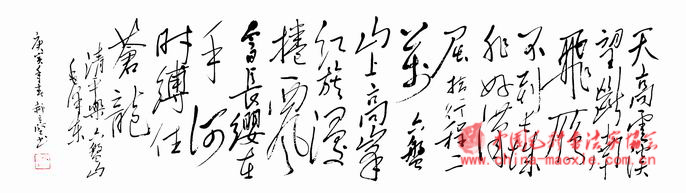 天高雲淡
望斷南
飛雁
不到長城
非好漢
屈指行程二
萬 六盤
山上高峯
红旗漫
捲西風
今日長纓在
手 何
时縛住
蒼龍
清平樂 六盤山
毛泽东
庚寅年
www.china-maoxie.com